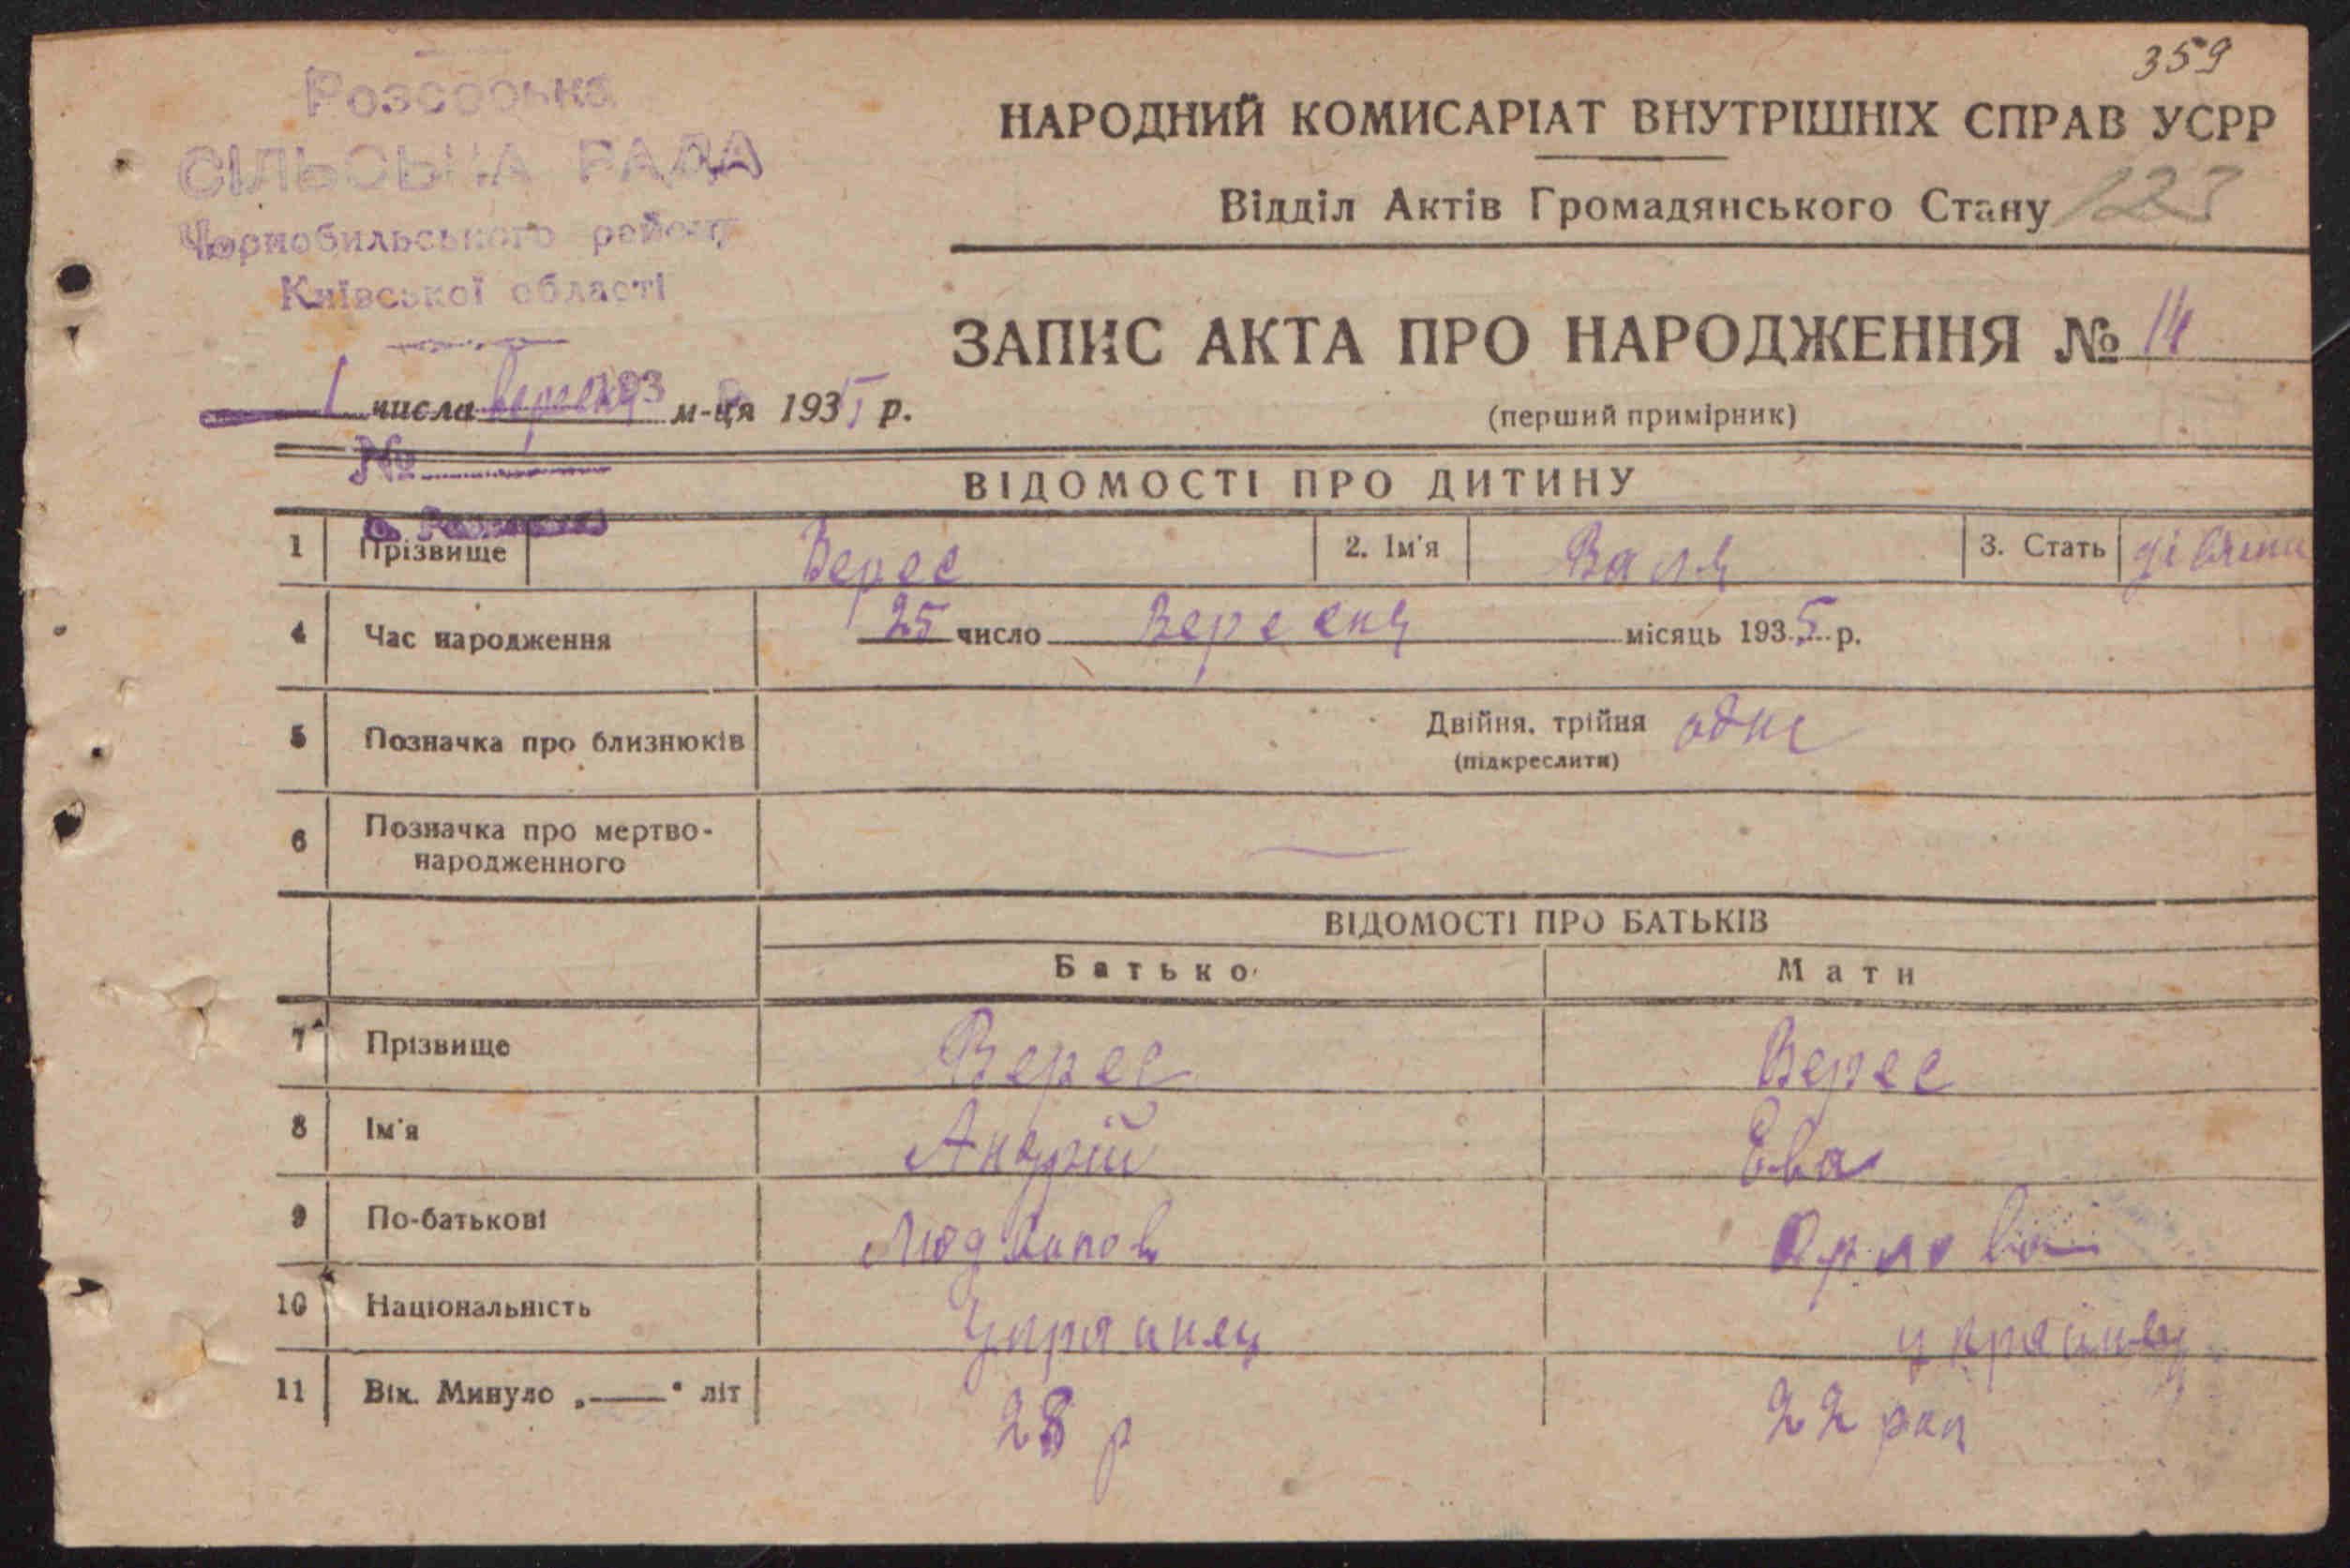 359
Розсоська
СІЛЬСЬКА РАДА
Чорнобильського району
Київської області
НАРОДНИЙ КОМИСАРІАТ ВНУТРІШНІХ СПРАВ УСРР
Відділ Актів Громадянського Стану 123
ЗАПИС АКТА ПРО НАРОДЖЕННЯ № 14
(перший примірник)
1 числа вересня м-ця 1935 р.
193
№
ВІДОМОСТІ ПРО ДИТИНУ
1 Прізвище Верес 2. Ім'я Валя 3. Стать
4 Час народження 25 число Вересня місяць 1935 р.
5 Позначка про близнюків Двійня, трійня одне
(підкреслити)
6 Позначка про мертво-
народженного —
ВІДОМОСТІ ПРО БАТЬКІВ
Батько Мати
7 Прізвище Верес Верес
8 Ім'я Андрій Ева
9 По-батькові
10 Національність
11 Вік. Минуло „—“ літ 28 р 22 рап